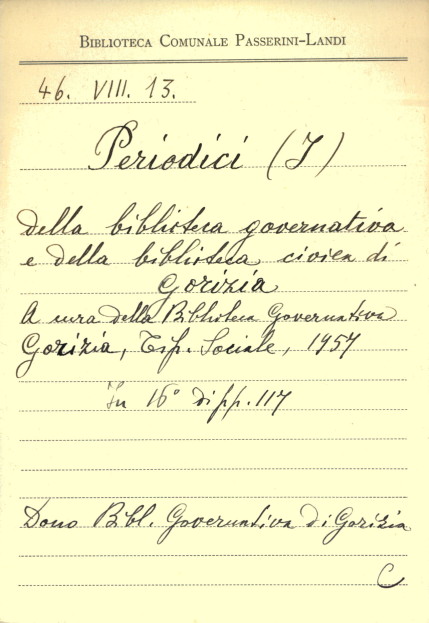 BIBLIOTECA COMUNALE PASSERINI-LANDI
46. VIII. 13.
Periodici (I)
della biblioteca governativa
e della biblioteca civica di
Gorizia
A cura della Biblioteca Governativa
Gorizia, Tip. Sociale, 1957
In 16° di pp. 117
Dono Bibl. Governativa di Gorizia
C